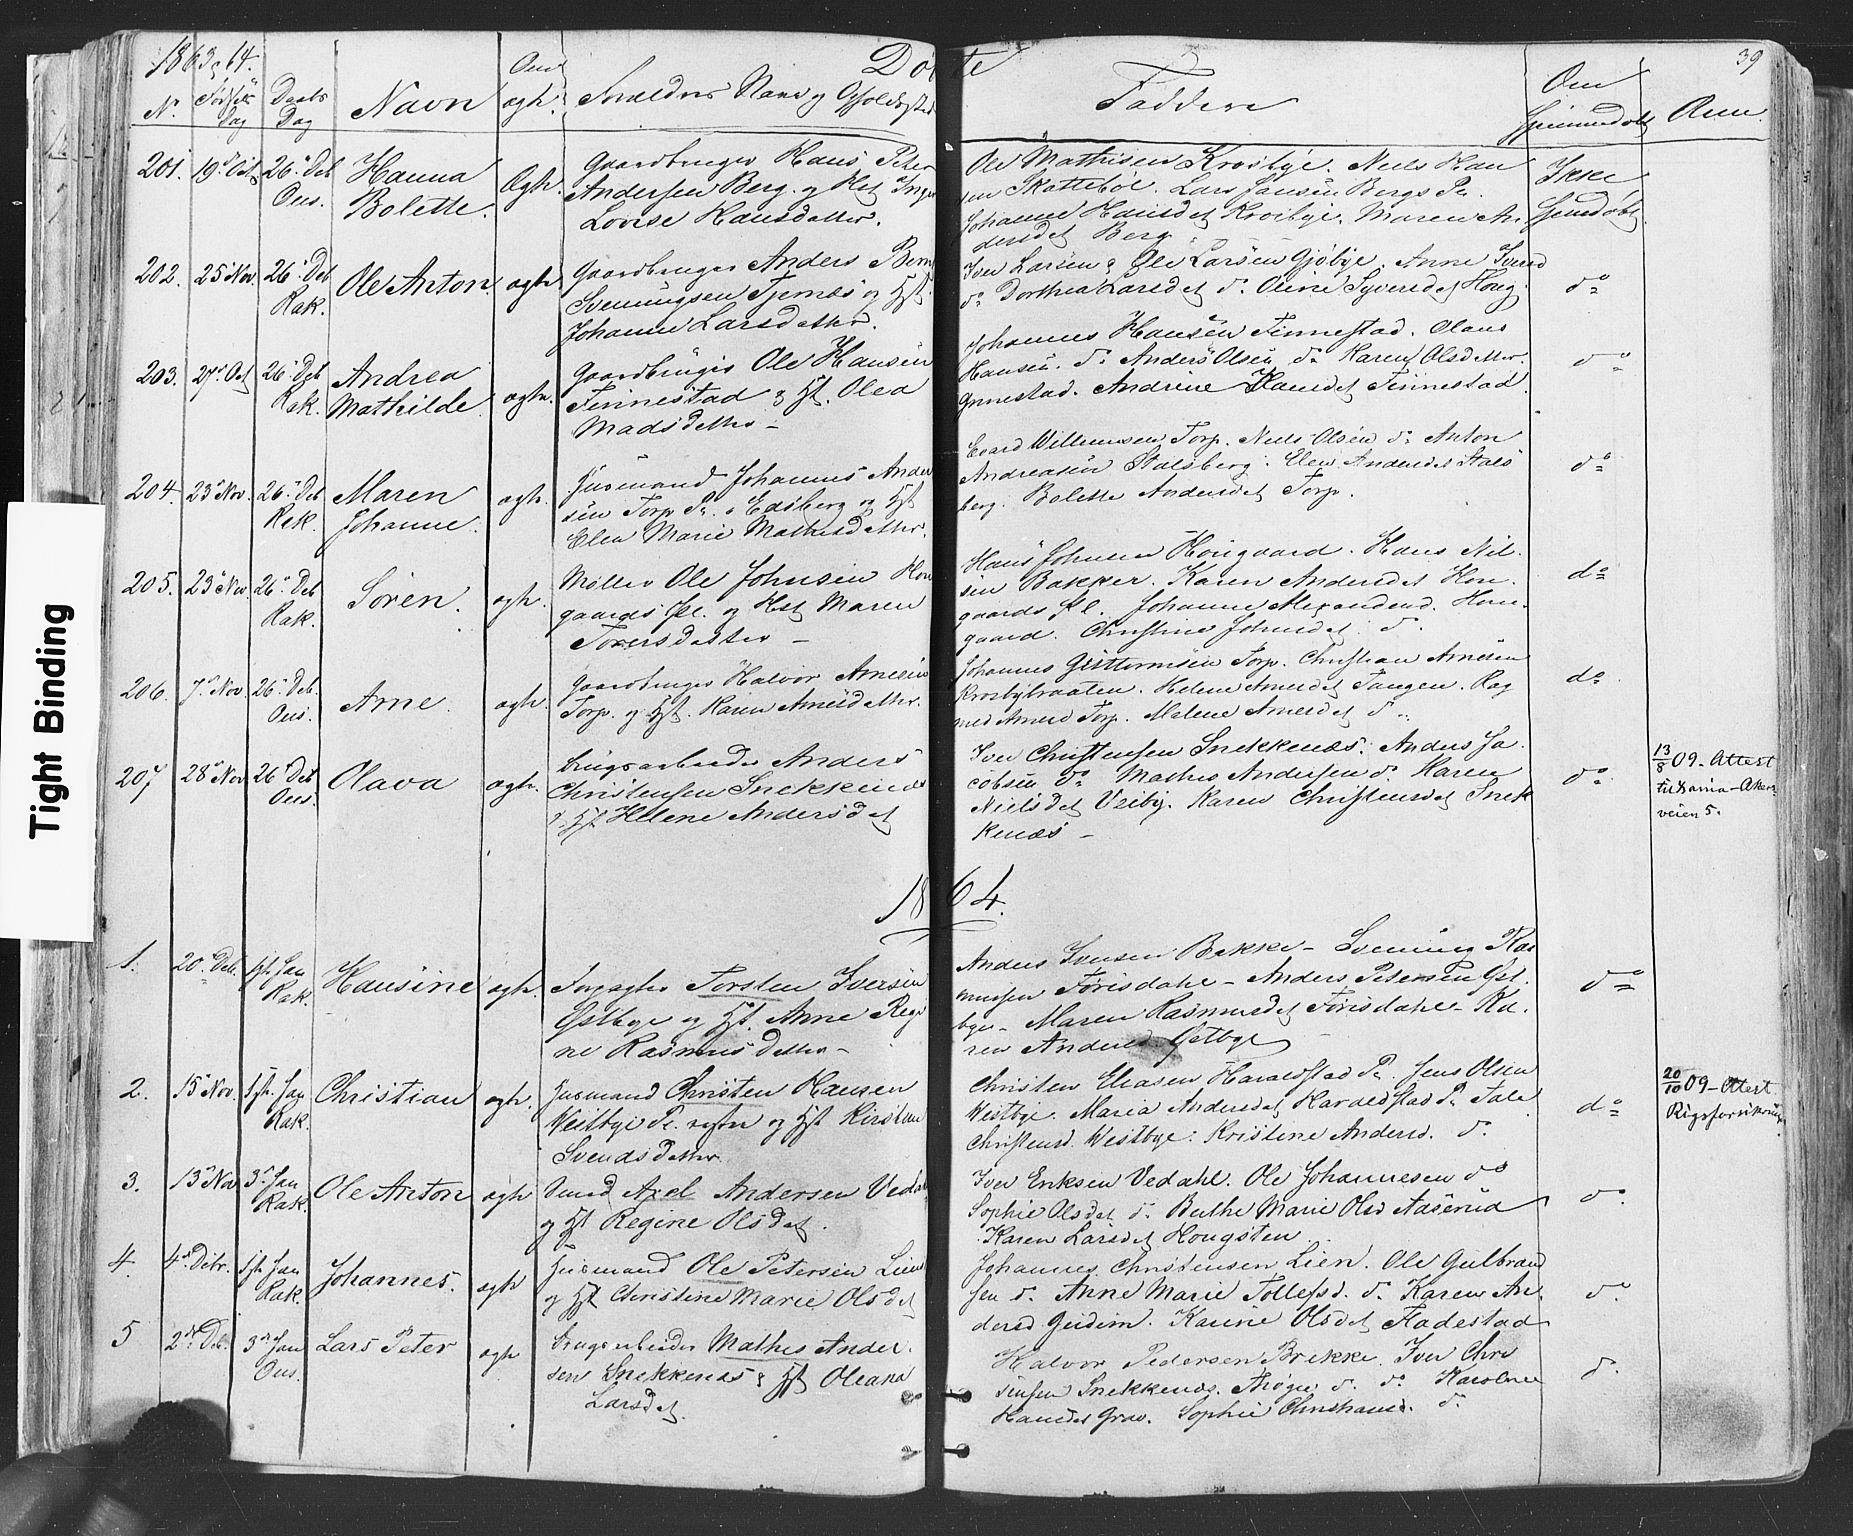 1863 & 64.
Døbte
39
N.
Fødsels Dag
Daabs Dag
Navn
Om ægte
Forældres Navn og Opholdssted
Faddere
Om Hjemmedøbt
Anm.
201. 19de Oct 26de Deb Ous.
Hanna
Bolette.
Ægte.
Gaardbruger Hans Peter
Andersen Berg. og Hst Inger
Lovise Hansdatter.
Ole Mathisen Krosbye. Niels Han
sen Skattebøl. Lars Jansen Bergs Pl.
Johanne Hansdat Krosbye. Maren An
dersdat Berg.
Ikke
hjemdøbt
202. 25de Nov. 26de Deb Rak.
Ole Anton.
ægte.
Gaardbruger Anders Bern
Svenningsen Tjernæs og Hst.
Johanne Larsdatter.
Iver Larsen & Ole Larsen Gjøbye. Anne Iversd
do Dorthea Larsdat do. Oline Syversdat Houg.
do
203. 27de Oct 26de Deb Rak.
Andrea
Mathilde.
ægte.
Gaardbruger Ole Hansen
Finnestad & Hst. Olea
Madsdatter –
Johannes Hansen Finnestad. Olaus
Hansen. do. Anders Olsen do Karen Olsdatter.
Gnnestad. Andrine Hansdat Finnestad.
do
204. 23de Nov. 26de Deb Rak.
Maren
Johanne.
ægte.
Husmand Johannes Ander
sen Torp Pl. i Edsberg og Hst
Elen Marie Mathisdatter.
Evard Willumsen Torp. Niels Olsen do. Anton
Andreasen Stalsberg. Elen Andersdat Stals
berg. Bolette Andersdat Torp.
do
205. 23de Nov. 26de Deb Rak.
Sören.
ægte.
Møller Ole Johnsen Hou
gaards Pl. og Hst Maren
Torersdatter –
Hans Johnsen Hougaard. Hans Nil
sen Bakker. Karen Andersdat Hou
gaards Pl. Johanne Alexandersd. Hou
gaard. Christine Johnsdat. do.
do
206. 7de Nov. 26de Deb. Ous.
Arne.
ægte.
Gaardbruger Halvor Arnesen
Torp. og Hst. Karen Arnesdatter.
Johannes Guttormsen Torp. Christian Arnesen
Krosbybraaten. Helene Arnesdat Tangen. Rag
ned Arnesd Torp. Malene Arnesdat do.
do
207 28de Nov 26de Deb Ous.
Olava
ægte.
Brugsarbeider Anders
Christensen Snekkenæs
& Hst Helene Andersdat
Iver Christensen Snekkenæs. Anders Ja
cobsen do. Mathis Andersen do. Karen
Nielsdat Veiby. Karen Christensdat Snek
kenæs –
do
13/8 09 - Attest
til Xania - Akers-
veien 5.
1864.
1. 20de Deb. 1ste Jan Rak.
Hansine
ægte.
Forpagter Torsten Iversen
Østbye og Hst. Anne Regi
ne Rasmusdatter –
Anders Iversen Bekke – Svenning Ras
mussen Førisdahl – Anders Petersen Øst
bye – Maren Rasmusdat Førisdahl – Ka.
ren Andersd. Østbye
do
2. 15de Nov. 1ste Jan Rak.
Christian
ægte.
Husmand Christen Hansen
Westbye Pl. og Hst Kirstine
Svendsdatter.
Christen Eliasen Haraldstad Pl. Jens Olsen
Westbye. Maria Andersdat Haraldstad Pl. Tale
Christensd. Westbye. Kristine Andersd. do.
do
20/10 09 - Attest
Rigsforsikring.
3. 13de Nov 3de Jan Rak.
Ole Anton
ægte
Smed Axel Andersen Vedahl
og Hst Regine Olsdat.
Iver Eriksen Vedahl. Ole Johannesen do
Sophie Olsdat do. Berthe Marie Olsd Aaserud
Karen Larsdat Hougsten
do.
4. 4de Debr. 1ste Jan Rak.
Johannes.
ægte
Husmand Ole Petersen Lien
og Hst Christine Marie Olsdat
Johannes Christensen Lien. Ole Gulbrand
sen do. Anne Marie Tollefsd. do. Karen An
dersd Gudim. Karine Olsdat Fladestad
do.
5 2den Deb. 3de Jan Ous.
Lars Peter
ægte
Brugsarbeider Mathis Ander.
sen Snekkenæs & Hst Oleana
Larsdat.
Halvor Pedersen Brekke. Iver Chri
stensen Snekkenæs. do. do Karoline
Hansdat Grav. Sophie Christiansd. do.
do.
Tight Binding